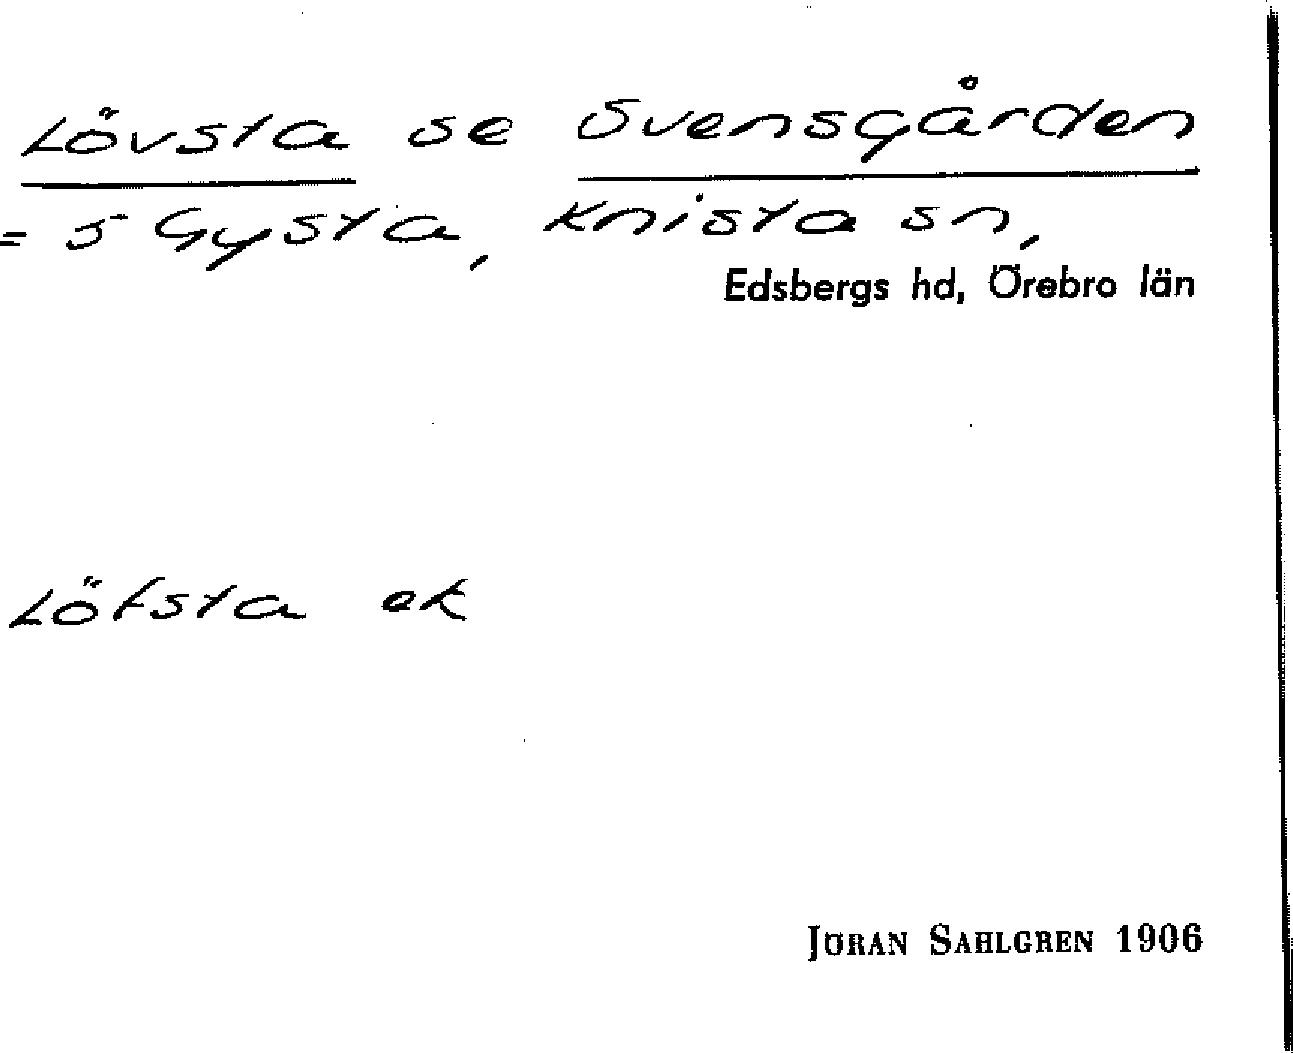 Lövsta se Svensgården
= 5 Gysta, Knista sn,
Edsbergs hd, Örebro län
Löfsta ek
JÖRAN SAHLGREN 1906